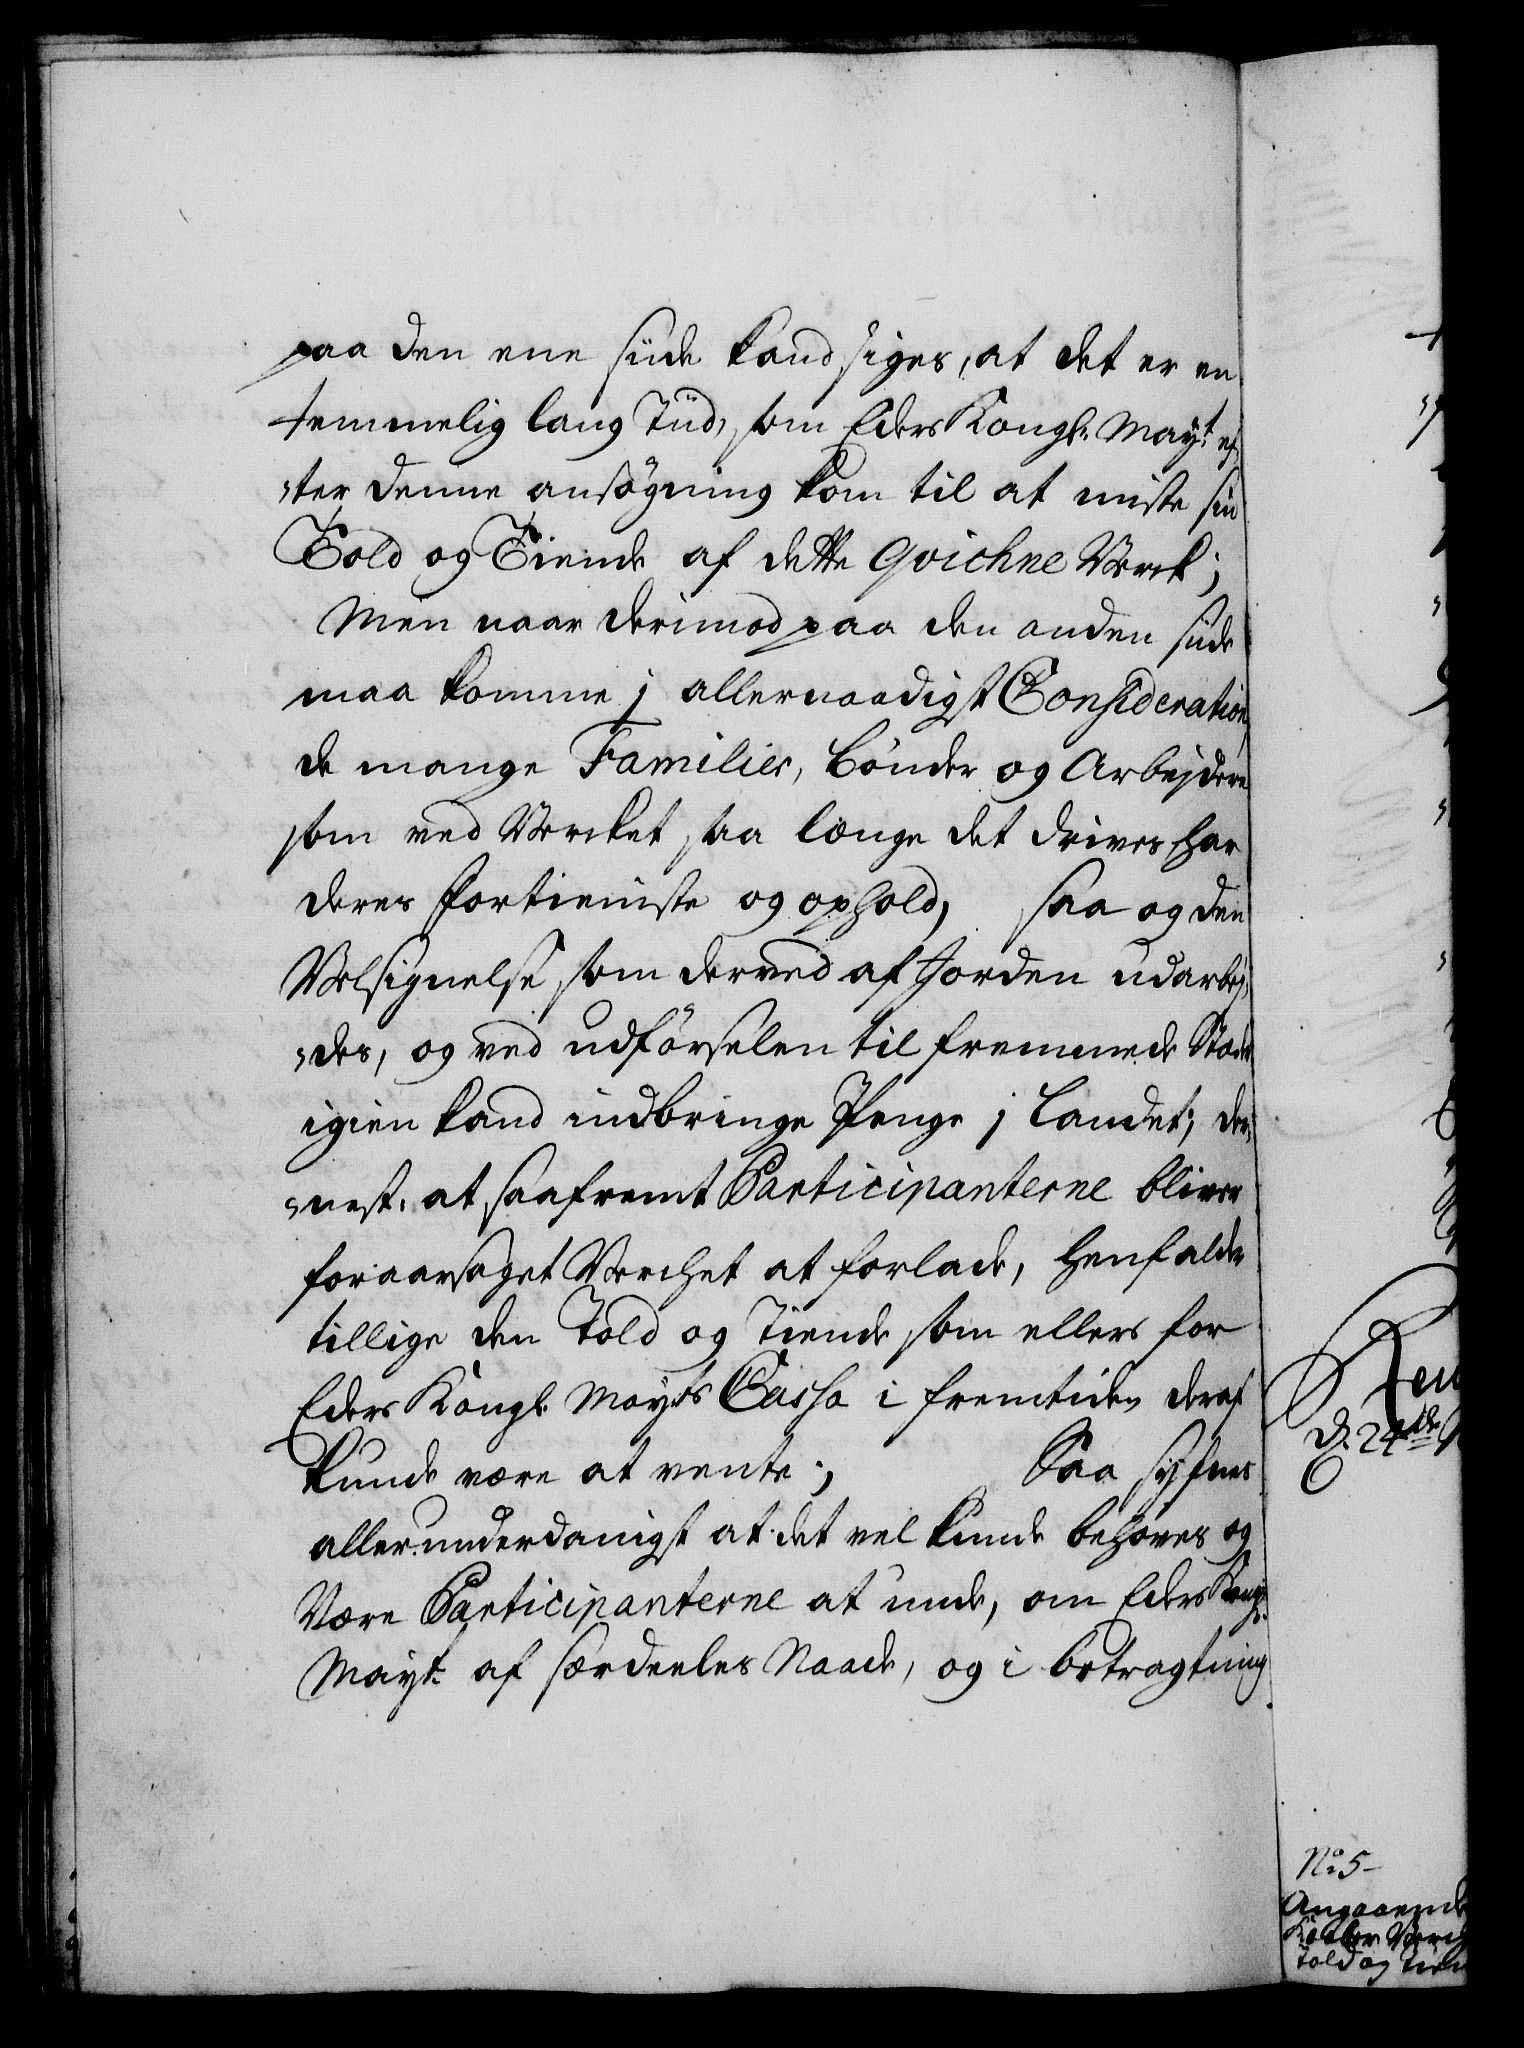 paa den ene siide kand siges, at det er en
temmelig lang Tiid, som Eders Kongl. Mayt. ef-
-ter denne ansøgning kom til at miste sin
Told og Tiende af dette Qvichne Verck;
Men naar derimod paa den anden siide
maa komme j allernaadigst Consideration
de mange Familier, bønder og Arbejdere
som ved Vercket saa længe det drives har
deres fortieniste og ophold, saa og den
Velsignelse, som derved af Jorden udarbej-
-des, og ved udførselen til fremmede Stæder
igien kand indbringe Penge j landet; der-
-nest, at saafremt Participanterne bliver
foraarsaget Verchet at forlade, henfalder
tillige den Told og Tiende som ellers for
Eders Kongl. Mayts Cassa i fremtiden deraf
kunde være at vente; Saa syfnes
allerunderdanigst at det vel kunde behøves og
Være Participanterne at unde, om Eders Kongl.
Mayt. af særdeeles Naade, og i betragtning
Ren
D. 24de
No. 5-
Angaaende
Kaaber Verch
Told og Tien